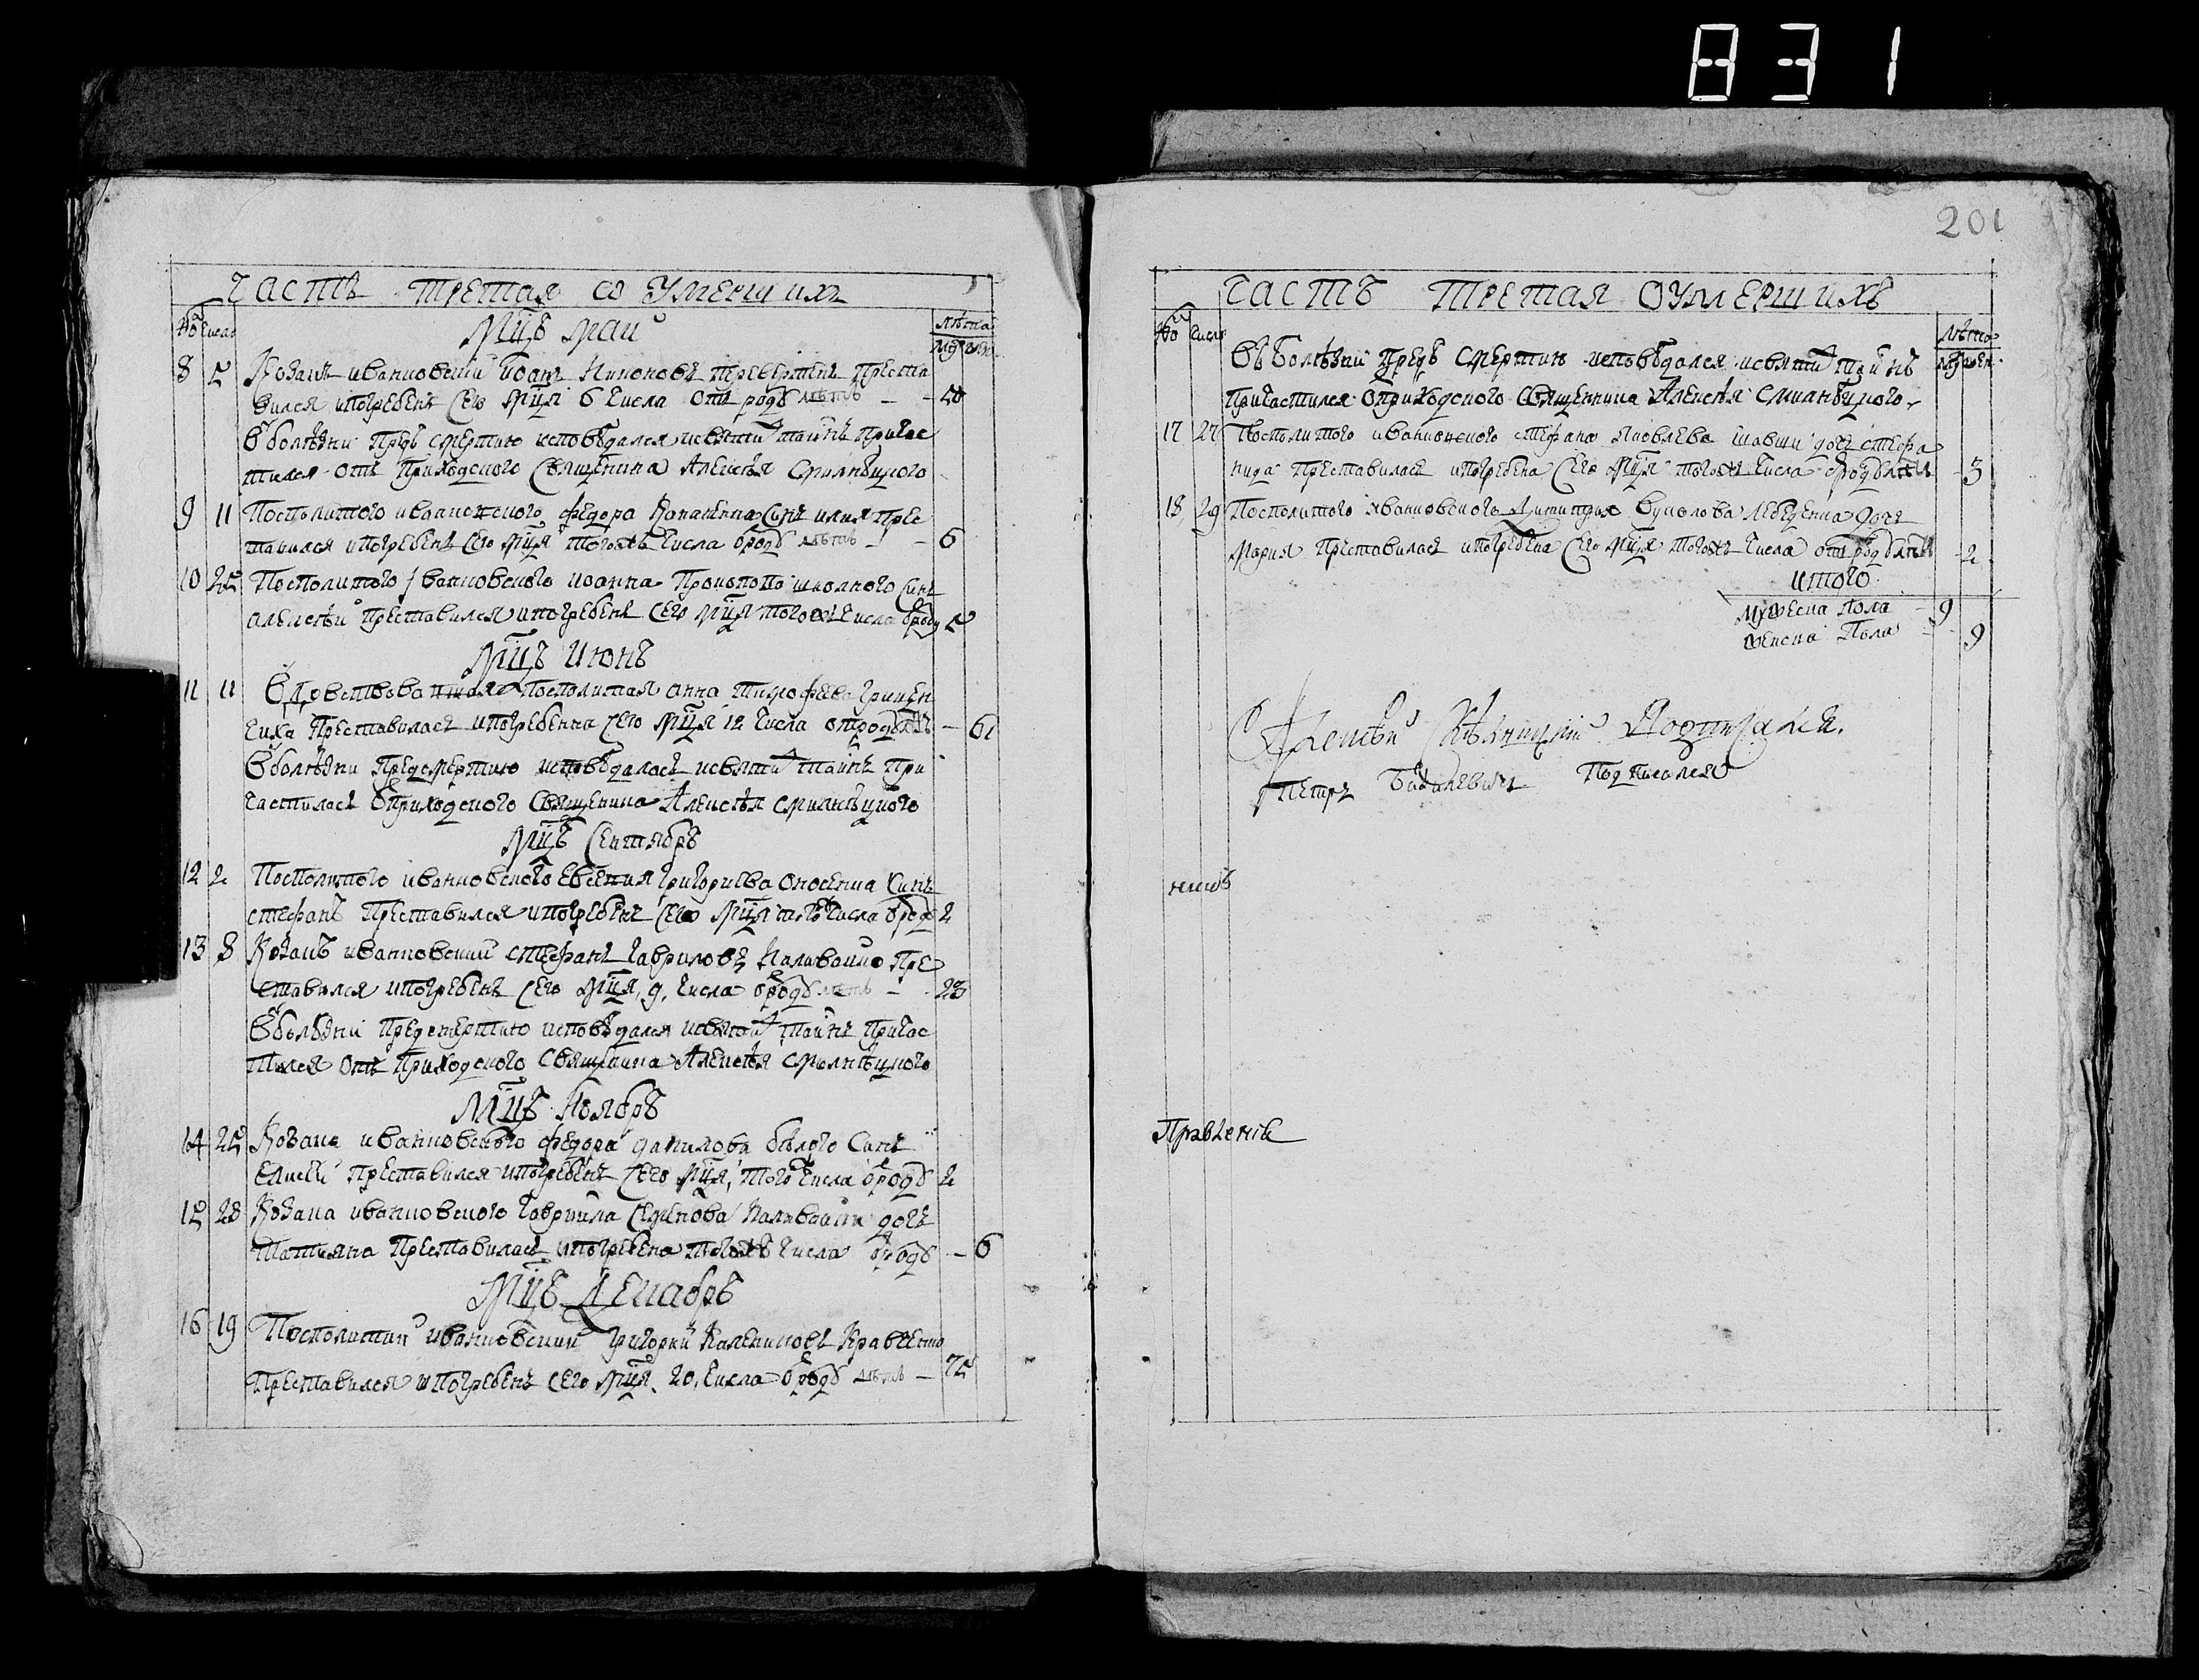 831
Часть третая ѡ умершихъ
№ Число Мцъ май лѣта
муж жен
8 5 Козакъ ивановский Иоанъ преста
вился ипогребенъ сего мца 6 числа отъ роду лѣтъ - - 50
Вболѣзни предъ смертию исповѣдался исвятии таинъ причас
тился отъ приходского священика Алексѣя
9 11 Посполитого ивановского федора сынъ илия прес
тавился ипогребенъ сего мца тогожъ числа ѿроду лѣтъ - - 6
10 25 Посполитого ивановского иоанна сынъ
алексѣй преставился ипогребенъ сего мца тогожъ числа ѿроду 5
Мцъ Июнь
11 11 Вдовствовавшая посполитая анна тимофѣева грицен
чиха преставилась ипогребенна сего мца 12 числа отроду лѣтъ - 61
Вболѣзни предсмертию исповѣдалась исвятии таинъ при
частилась ѿприходского священика Алексѣя
Мцъ Сентябръ
12 2 Посполитого ивановского григориева сынъ
стефанъ преставился ипогребенъ сего мца того числа ѿроду 2
13 8 Козакъ ивановский стефанъ гавриловъ пре
ставился ипогребенъ сего мца, 9, числа ѿроду лѣтъ - - 23
Вболѣзни предсмертию исповѣдался исвятии таинъ причас
тился отъ приходского священика Алексѣя
Мцъ Ноябръ
14 25 Козака ивановского федора данилова бѣлого сынъ
Елисей преставился ипогребенъ сего мца, того числа ѿроду 2
15 28 Козака ивановского гавриила дочъ
татияна преставилась ипогребена тогожъ числа ѿроду - 6
Мцъ Декабръ
16 19 Посполитий ивановский григорий Кравченко
преставился ипогребенъ сего мца, 20, числа ѿроду лѣтъ - 75
201
Часть третая ѡумершихъ
№ Число Лѣта
муж жен
Въ болѣзни предъ смертию исповѣдался исвятии таинъ
причастился ѿприходского священника Алексѣя
17 27 Посполитого ивановского стефана Яковлева дочъ стефа
нида преставилась ипогребена сего мца тогожъ числа ѿроду лѣтъ - 3
18 29 Посполитого ивановского Димитрия дочъ
Мария преставилась ипогребена сего мца тогожъ числа отроду лѣтъ - 2
Итого
мужеска пола - 9
женска пола - - 9
Алексѣй подписался.
Петръ подписался
Правление